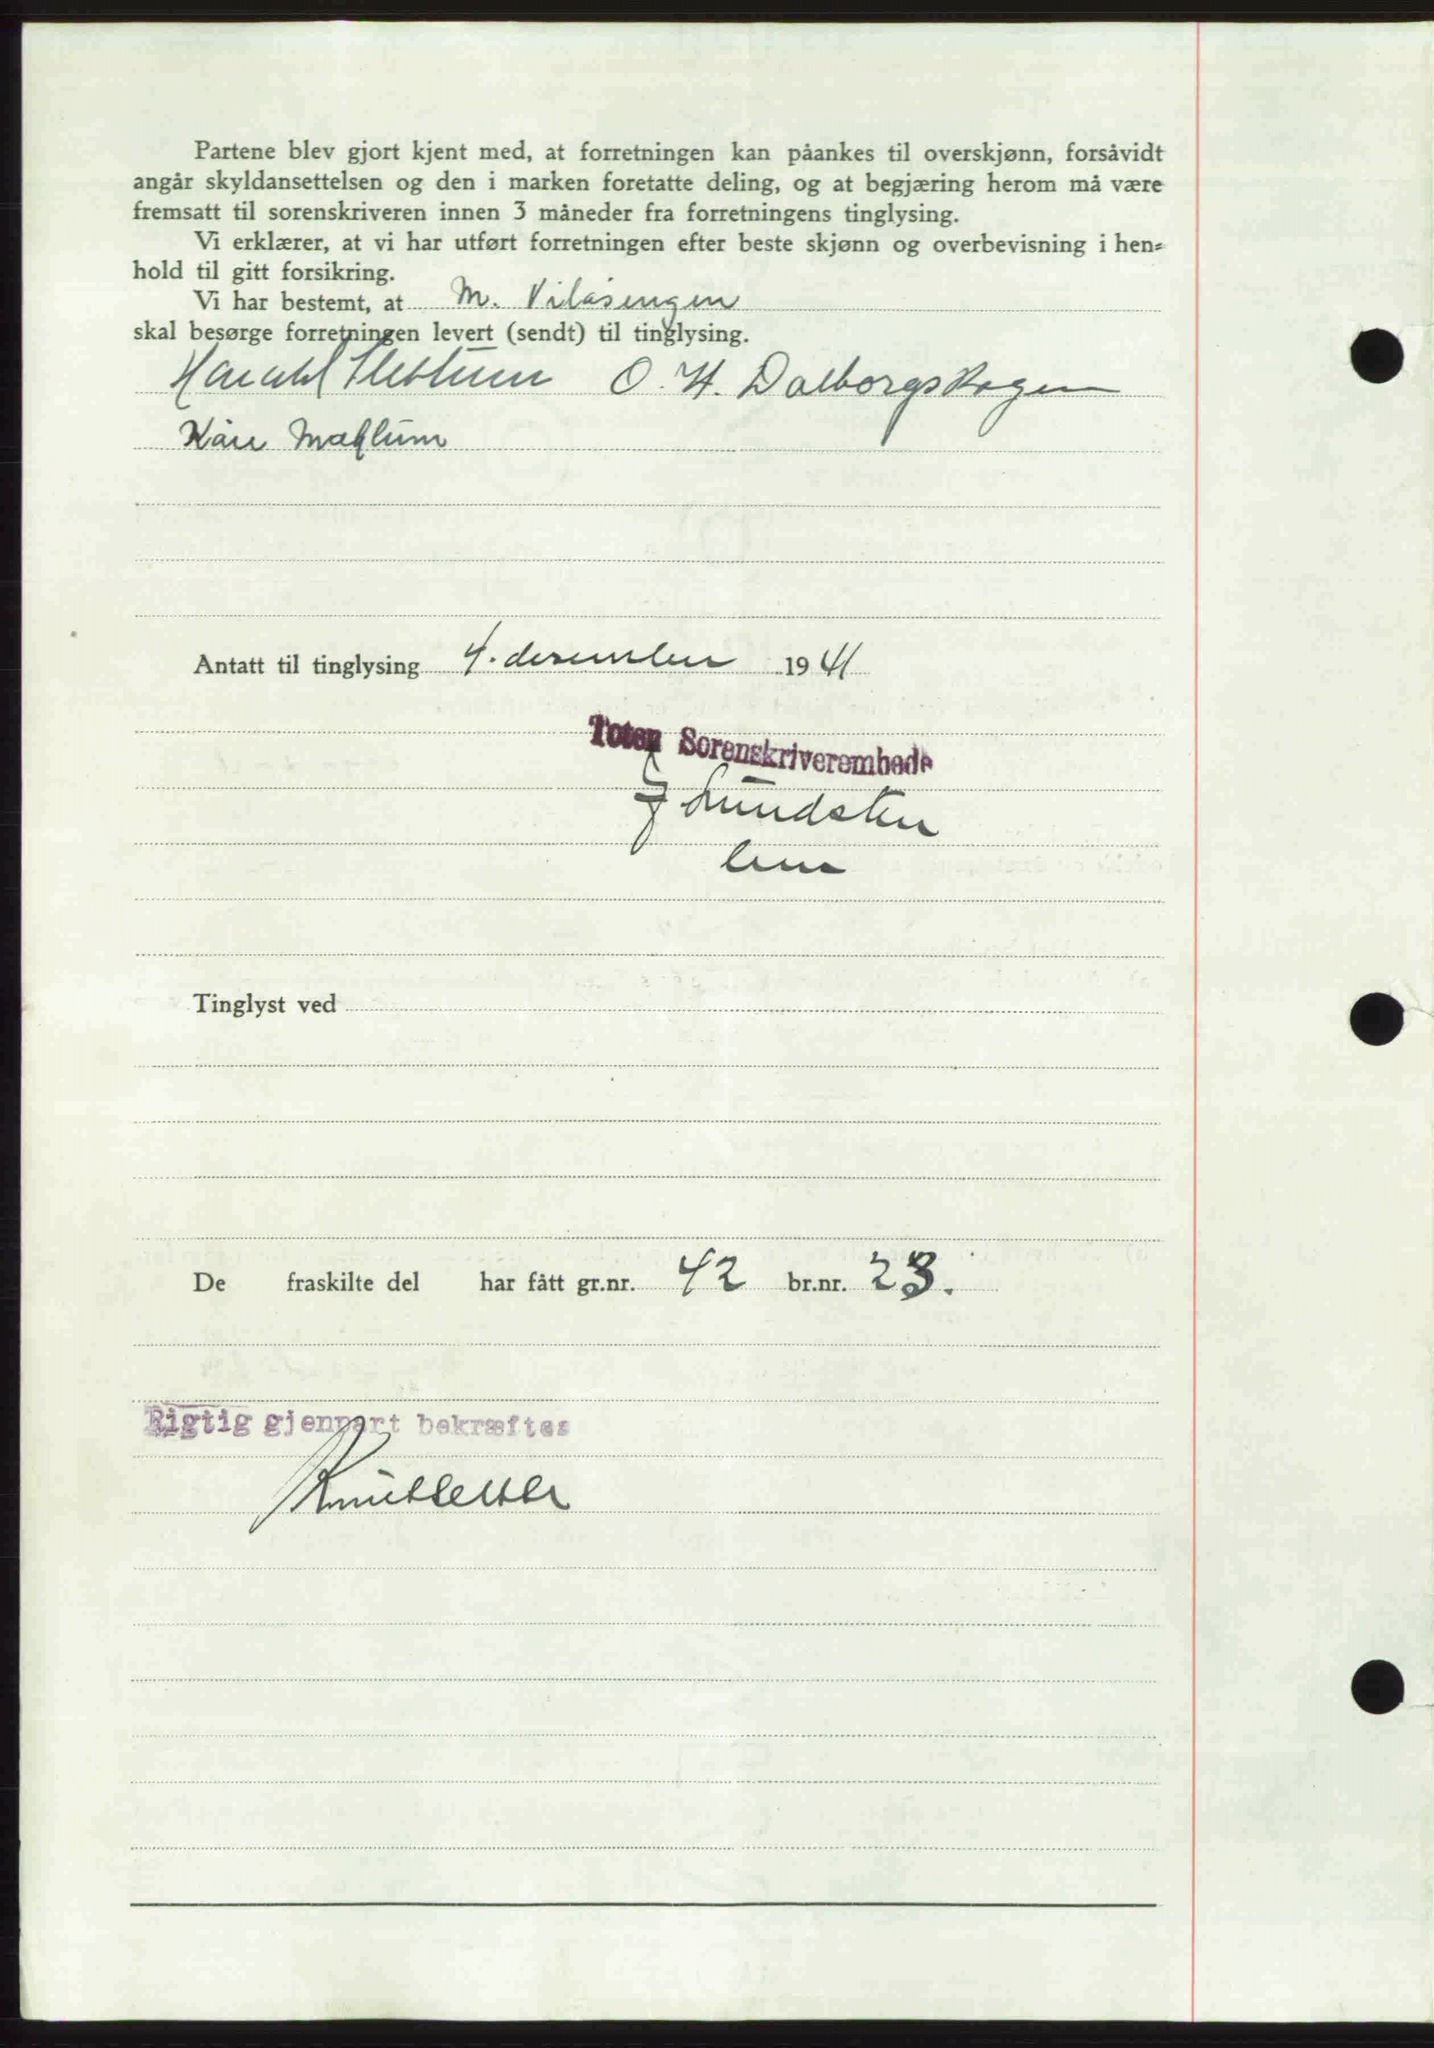 Partene blev gjort kjent med, at forretningen kan påankes til overskjønn, forsåvidt
angår skyldansettelsen og den i marken foretatte deling, og at begjæring herom må være
fremsatt til sorenskriveren innen 3 måneder fra forretningens tinglysing.
Vi erklærer, at vi har utført forretningen efter beste skjønn og overbevisning i hen-
hold til gitt forsikring.
Vi har bestemt, at M. Vilåsengen
skal besørge forretningen levert (sendt) til tinglysing.
Harald O. H. Dalborgskogen
Kåre Mæhlum
Antatt til tinglysing 4. desember 1941
Toten Sorenskriverembede
Lundsten
Tinglyst ved
De fraskilte del har fått gr.nr. 42 br.nr. 23.
Rigtig gjenpart bekræftes